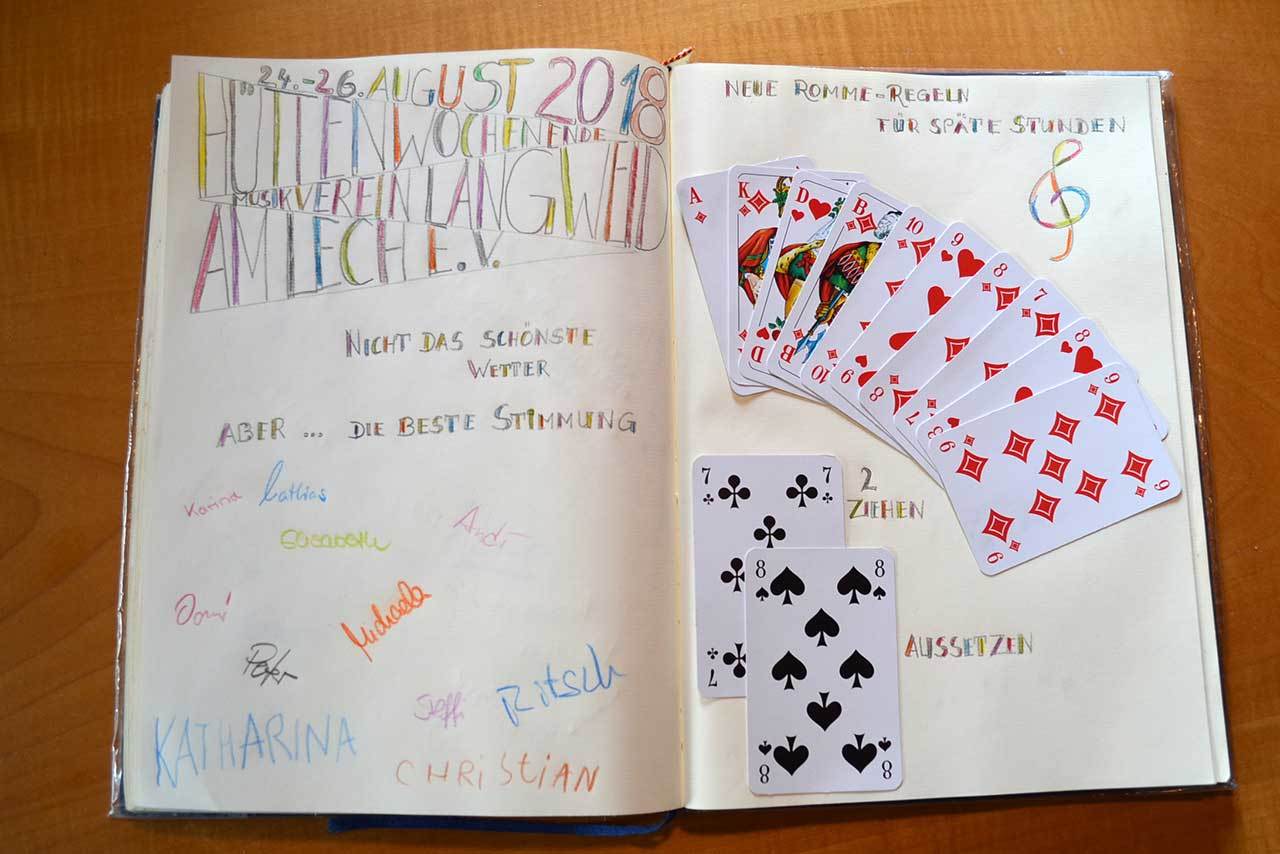 24.-26. AUGUST 2018
HÜTTENWOCHENENDE
MUSIKVEREIN LANGWEID
AM LECH E.V.
NICHT DAS SCHÖNSTE
WETTER
ABER ... DIE BESTE STIMMUNG
Karina
Elisabeth
Domi
Michaela
Peter
Steffi
Ritsch
KATHARINA
CHRISTIAN
NEUE ROMME-REGELN
FÜR SPÄTE STUNDEN
A
K
D
B
10
9
8
7
8
9
D
B
10
9
8
7
9
9
7
7
2
ZIEHEN
7
8
8
8
8
AUSSETZEN